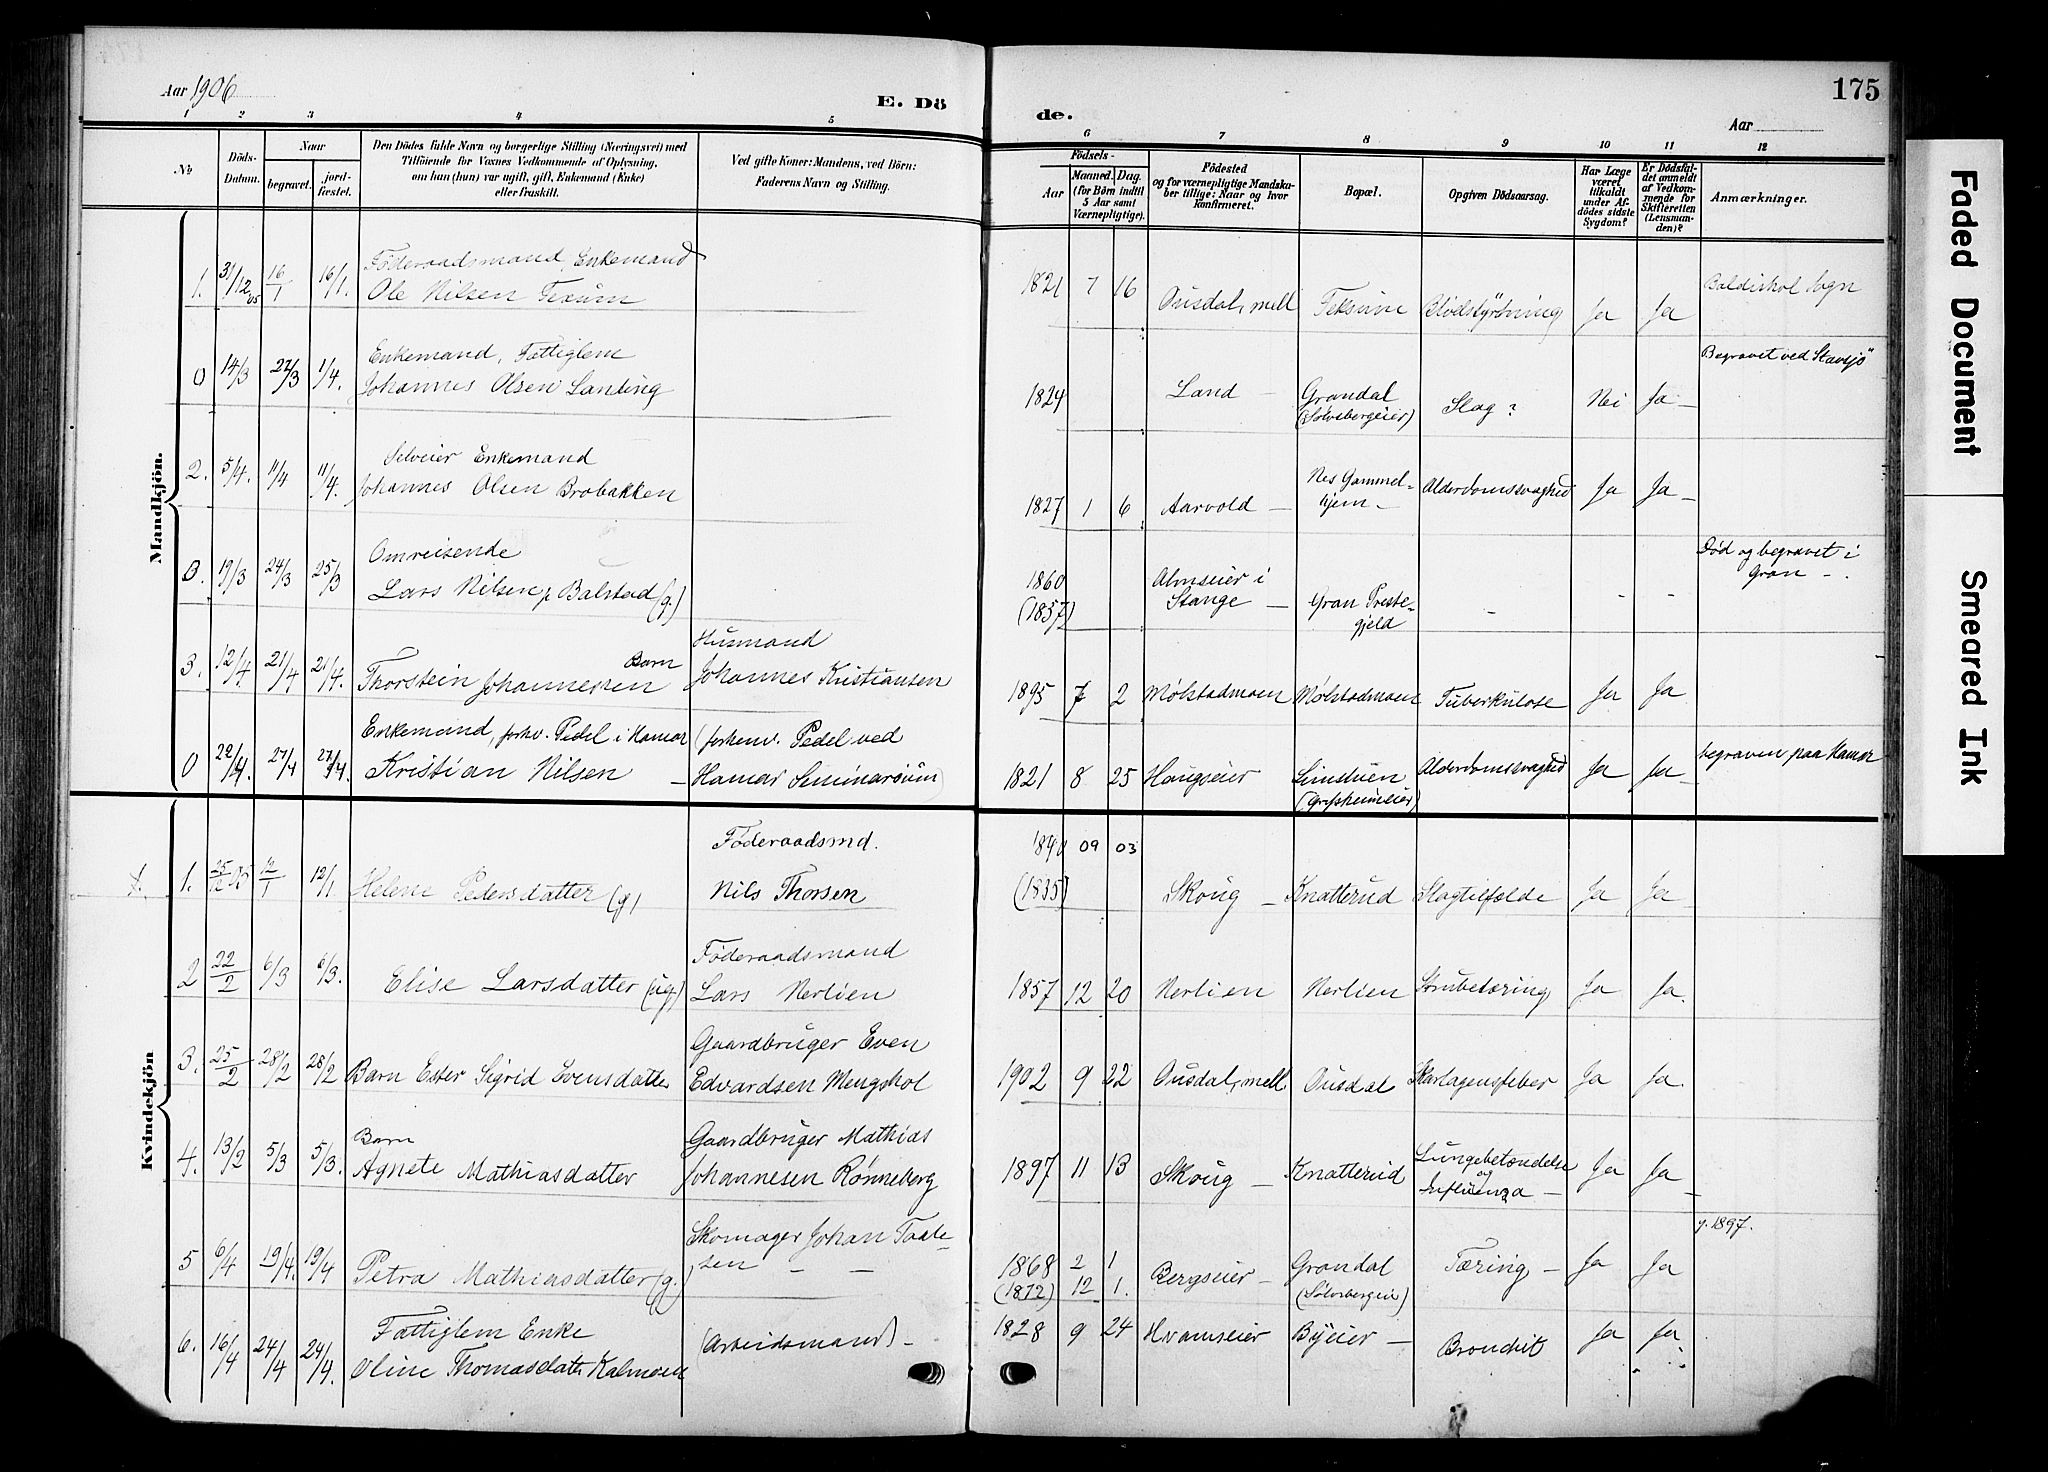 Aar 1906
E. Dö
de.
175
Aar
1 2 3 4 5 6 7 8 9 10 11 12
No
Döds-Datum.
Naar
begravet.
jordfæstet.
Den Dödes fulde Navn og borgerlige Stilling (Næringsvei) med
Tilföiende for Voxnes Vedkommende af Oplysning,
om han (hun) var ugift, gift, Enkemand (Enke)
eller fraskilt.
Ved gifte Koner: Mandens, ved Börn:
Faderens Navn og Stilling.
Födsels-
Aar
Maaned. Dag.
(for Börn indtil
5 Aar samt
Værnepligtige).
Födested
og for værnepligtige Mandska-
ber tillige: Naar og hvor
konfirmeret.
Bopæl.
Opgiven Dödsaarsag.
Har Læge
været
tilkaldt
under Af-
dödes sidste
Sygdom?
Er Dödsfal-
det anmeldt
af Vedkom-
mende for
Skifteretten
(Lensman-
den)?
Anmærkninger.
Mandkjön.
1. 31/12 05 16/1 16/1. Føderaadsmand, Enkemand
Ole Nilsen Texum
1821 7 16 Ousdal, mell Teksum Blodstyrtning Ja Ja Baldishol Sogn
0 14/3 27/3 1/4. Enkemand, Fattiglem
Johannes Olsen
1824 Land Grøndal
(Sølvsbergeier) Slag? Nei Ja Begravet ved Stavsjø
2. 5/4. 11/4 11/4. Selveier Enkemand
Johannes Olsen Brobakken
1827 1 6 Aarvold Nes Gammel-
hjem Alderdomssvaghed Ja Ja
0. 19/3 24/3 25/3 Omreisende
Lars Nilsen p. Balstad (g.)
1860
(1857) Almseier i
Stange Gran Preste-
gjeld - - - Død og begravet i
Gran
3. 12/4 21/4 21/4. Barn
Thorstein Johannessen
Husmand
Johannes Kristiansen
1895 7 2 Mølstadmoen Mølstadmoen Tuberkulose Ja Ja
0 22/4 27/4 27/4. Enkemand, forhv. Pedel i Hamar
Kristian Nilsen
(forhenv. Pedel ved
Hamar Seminarium)
1821 8 25 Haugseier Linstuen
(Grefsheimeier) Alderdomssvaghed Ja Ja begraven paa Hamar
Kvindekjön
1. 25/12 05 12/1 12/1 Helene Pedersdatter (g)
Føderaadsmd.
Nils Thorsen
1840 09 03
(1835) Skoug Knatterud Slagtilfælde Ja Ja
2 22/2 6/3 6/3. Elise Larsdatter (ug.)
Føderaadsmand
Lars Nerlien
1857 12 20 Nerlien Nerlien Strubetæring Ja Ja.
3. 25/2 28/2 28/2 Barn Ester Sigrid Evensdatter
Gaardbruger Even
Edvardsen Mengshol
1902 9 22 Ousdal, mell Ousdal Skarlagensfeber Ja Ja.
4. 13/2 5/3 5/3. Barn
Agnete Mathiasdatter
Gaardbruger Mathias
Johannesen Rønneberg
1897 11 13 Skoug Knatterud Lungebetændelse
og
Influenza Ja Ja
5 6/4 19/4. 19/4 Petra Mathiasdatter (g.)
Skomager Johan Taale-
sen
1868 2 1
(1872) 12 1. Bergseier Grøndal
(Sølvsbergeie) Tæring Ja Ja g. 1897.
6. 16/4 24/4 24/4. Fattiglem Enke
Oline Thomasdatt. Kalmoen
(Arbeidsmand)
1828 9 24 Hvamseier Byeier Bronchit Ja Ja
Faded Document
Smeared Ink